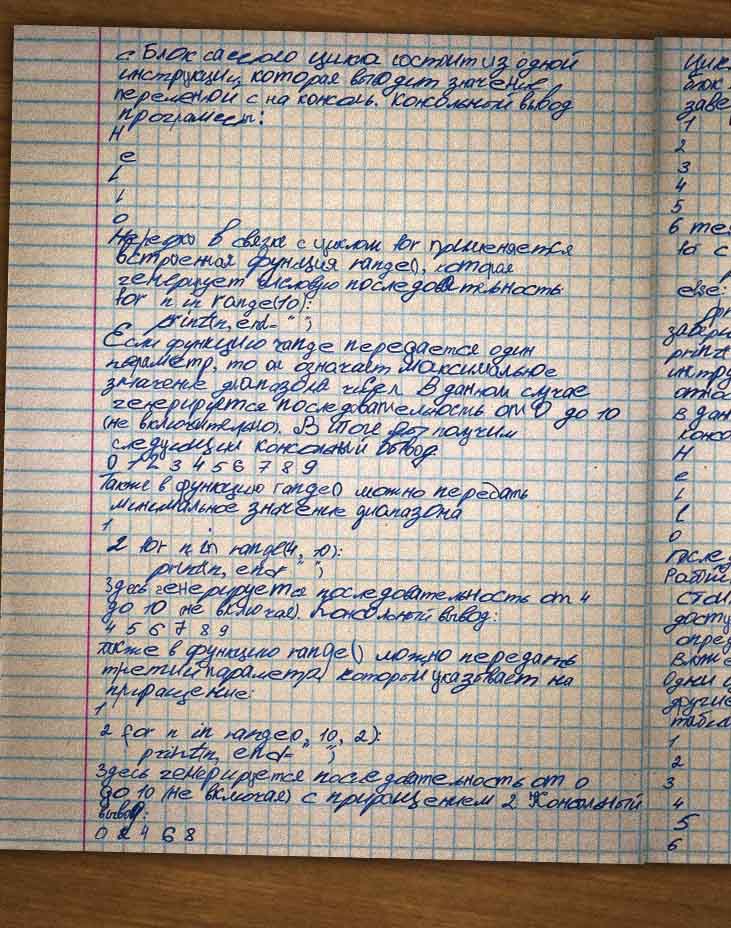 с Блок самого цикла состоит из одной
инструкции, которая выводит значение
переменной с на консоль. Консольный вывод
программы:
H
e
l
l
o
Нередко в связке с циклом for применяется
встроенная функция range(), которая
генерирует числовую последовательность:
for n in range(10):
print(n, end= " ")
Если функцию range передается один
параметр, то он означает максимальное
значение диапазона чисел. В данном случае
генерируется последовательность от 0 до 10
(не включительно). В итоге мы получим
следующий консольный вывод:
0 1 2 3 4 5 6 7 8 9
Также в функцию range() можно передать
минимальное значение диапазона
1
2 for n in range(4, 10):
print(n, end= " ")
Здесь генерируется последовательность от 4
до 10 (не включая). Консольный вывод:
4 5 6 7 8 9
Также в функцию range() можно передать
третий параметр, который указывает на
приращение:
1
2 for n in range(0, 10, 2):
print(n, end= " ")
Здесь генерируется последовательность от 0
до 10 (не включая) с приращением 2. Консольный
вывод:
0 2 4 6 8
Цик
блок
заве
1
2
3
4
5
в те
то с
else:
завер
print
инстру
относ
в дан
консо
H
e
l
l
o
послед
стои
досту
опред
Вложе
Одни ц
другие
табли
1
2
3
4
5
6